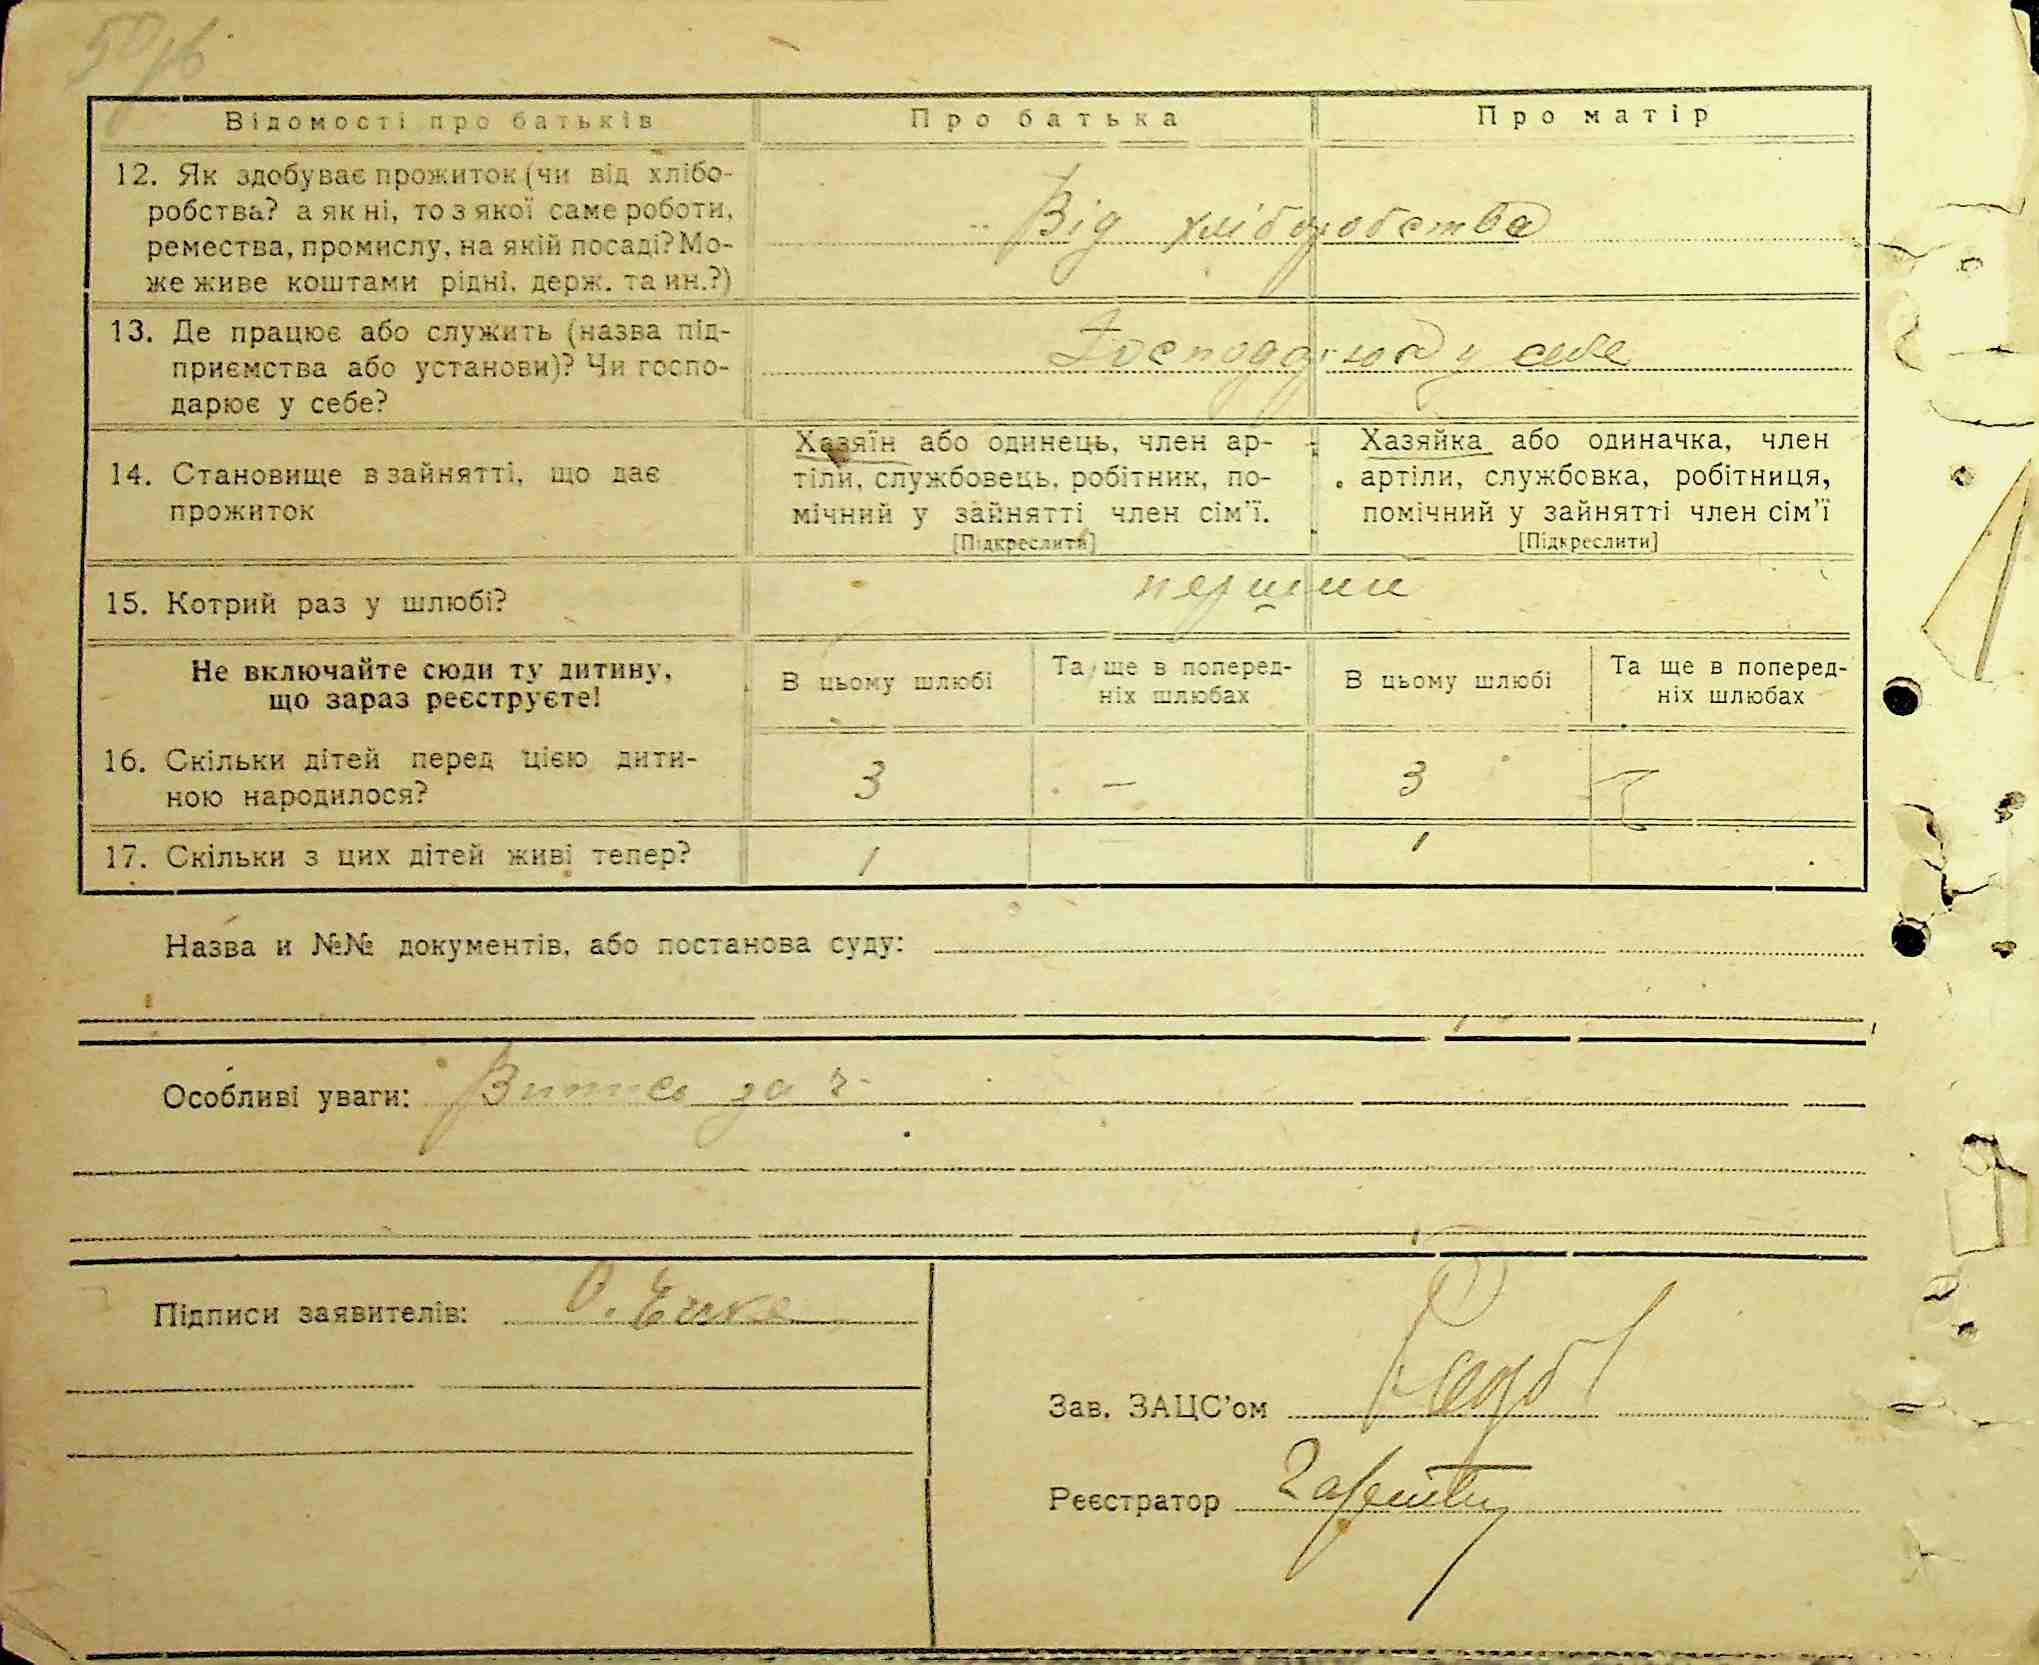 Відомості про батьків
Про батька
Про матір
12. Як здобуває прожиток (чи від хлібо-
робства? а як ні, то з якої саме роботи,
ремества, промислу, на якій посаді? Мо-
же живе коштами рідні, держ. та ин.?)
Від хліборобства
13. Де працює або служить (назва під-
приємства або установи)? Чи госпо-
дарює у себе?
у себе
14. Становище в зайнятті, що дає
прожиток
Хазяїн або одинець, член ар-
тіли, службовець, робітник, по-
мічний у зайнятті член сім'ї.
[Підкреслити]
Хазяйка або одиначка, член
артіли, службовка, робітниця,
помічний у зайнятті член сім'ї
[Підкреслити]
15. Котрий раз у шлюбі?
перший
Не включайте сюди ту дитину,
що зараз реєструєте!
В цьому шлюбі
Та ще в поперед-
ніх шлюбах
В цьому шлюбі
Та ще в поперед-
ніх шлюбах
16. Скільки дітей перед цією дити-
ною народилося?
3 – 3
17. Скільки з цих дітей живі тепер?
1 1
Назва и №№ документів, або постанова суду:
Особливі уваги: за
Підписи заявителів:
Зав. ЗАЦС'ом
Реєстратор